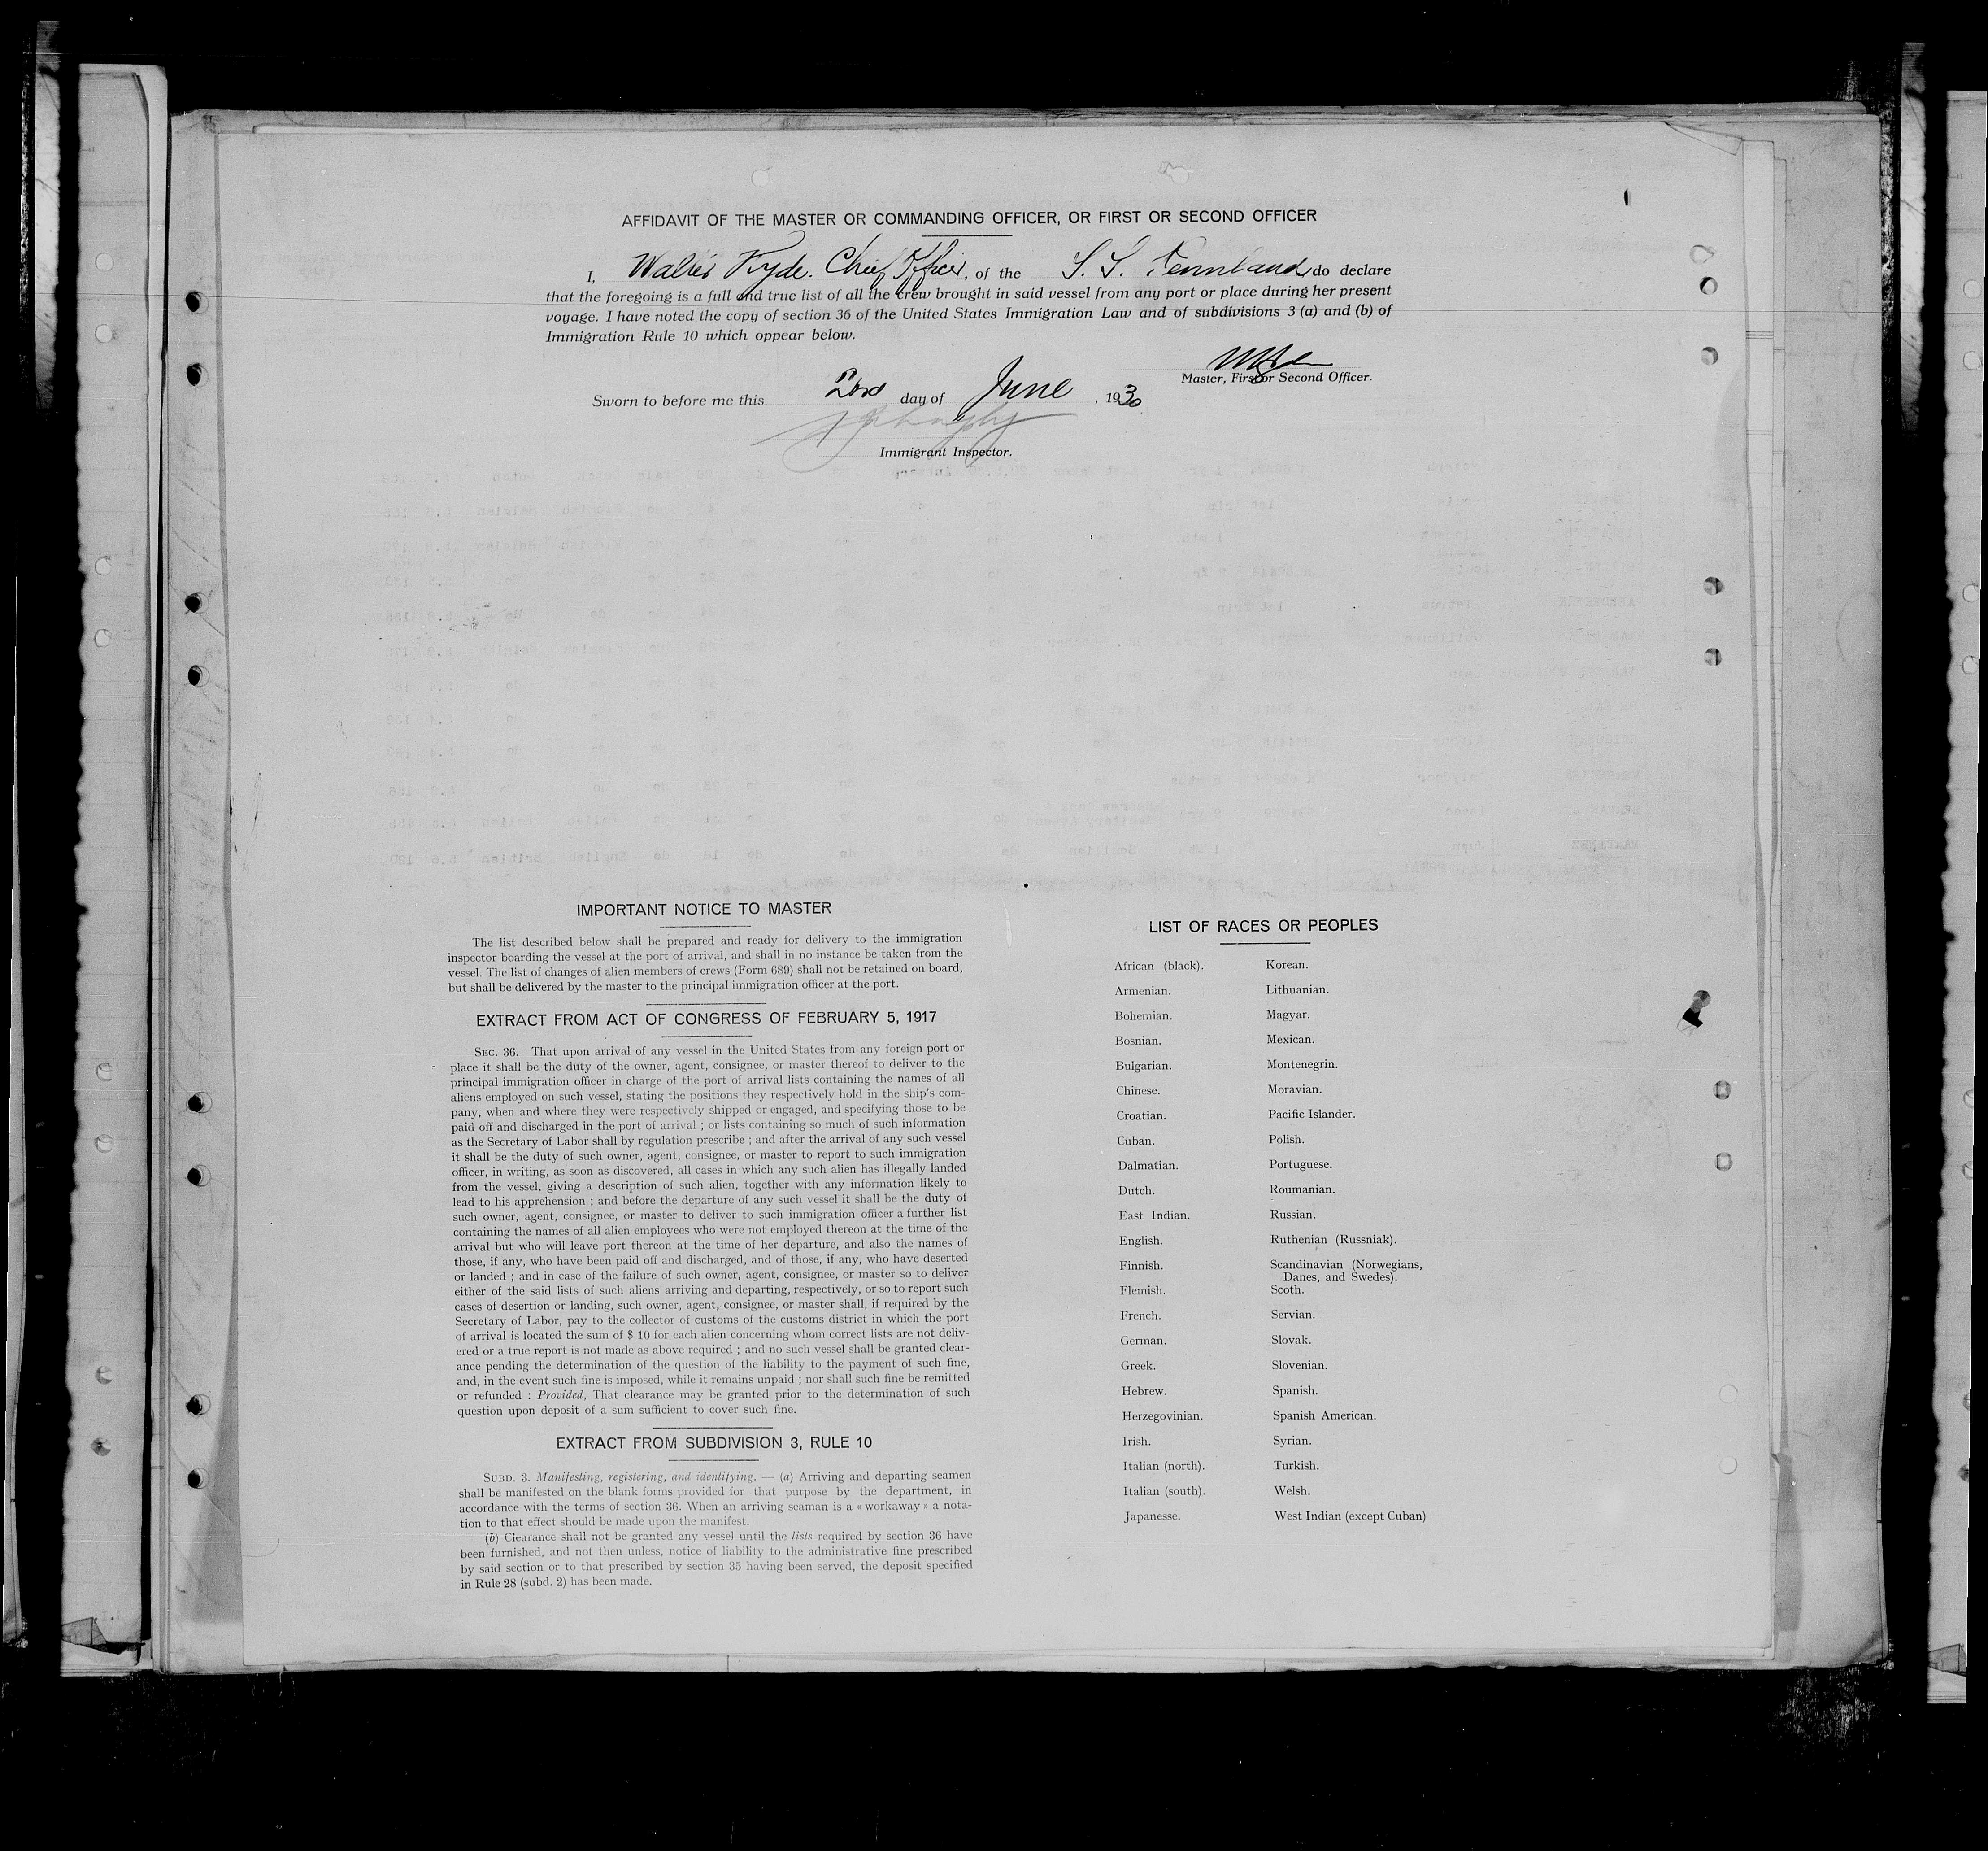 AFFIDAVIT OF THE MASTER OR COMMANDING OFFICER, OR FIRST OR SECOND OFFICER
I, Walter Hyde. Chief Officer, of the S. S. Pennland do declare
that the foregoing is a full and true list of all the crew brought in said vessel from any port or place during her present
voyage. I have noted the copy of section 36 of the United States Immigration Law and of subdivisions 3 (a) and (b) of
Immigration Rule 10 which oppear below.
Master, First or Second Officer.
Sworn to before me this day of June, 1930
Immigrant Inspector.
IMPORTANT NOTICE TO MASTER
The list described below shall be prepared and ready for delivery to the immigration
inspector boarding the vessel at the port of arrival, and shall in no instance be taken from the
vessel. The list of changes of alien members of crews (Form 689) shall not be retained on board,
but shall be delivered by the master to the principal immigration officer at the port.
EXTRACT FROM ACT OF CONGRESS OF FEBRUARY 5, 1917
SEC. 36. That upon arrival of any vessel in the United States from any foreign port or
place it shall be the duty of the owner, agent, consignee, or master thereof to deliver to the
principal immigration officer in charge of the port of arrival lists containing the names of all
aliens employed on such vessel, stating the positions they respectively hold in the ship's com-
pany, when and where they were respectively shipped or engaged, and specifying those to be
paid off and discharged in the port of arrival ; or lists containing so much of such information
as the Secretary of Labor shall by regulation prescribe ; and after the arrival of any such vessel
it shall be the duty of such owner, agent, consignee, or master to report to such immigration
officer, in writing, as soon as discovered, all cases in which any such alien has illegally landed
from the vessel, giving a description of such alien, together with any information likely to
lead to his apprehension ; and before the departure of any such vessel it shall be the duty of
such owner, agent, consignee, or master to deliver to such immigration officer a further list
containing the names of all alien employees who were not employed thereon at the time of the
arrival but who will leave port thereon at the time of her departure, and also the names of
those, if any, who have been paid off and discharged, and of those, if any, who have deserted
or landed ; and in case of the failure of such owner, agent, consignee, or master so to deliver
either of the said lists of such aliens arriving and departing, respectively, or so to report such
cases of desertion or landing, such owner, agent, consignee, or master shall, if required by the
Secretary of Labor, pay to the collector of customs of the customs district in which the port
of arrival is located the sum of $ 10 for each alien concerning whom correct lists are not deliv-
ered or a true report is not made as above required ; and no such vessel shall be granted clear-
ance pending the determination of the question of the liability to the payment of such fine,
and, in the event such fine is imposed, while it remains unpaid ; nor shall such fine be remitted
or refunded : Provided, That clearance may be granted prior to the determination of such
question upon deposit of a sum sufficient to cover such fine.
EXTRACT FROM SUBDIVISION 3, RULE 10
SUBD. 3. Manifesting, registering, and identifying. — (a) Arriving and departing seamen
shall be manifested on the blank forms provided for that purpose by the department, in
accordance with the terms of section 36. When an arriving seaman is a « workaway » a nota-
tion to that effect should be made upon the manifest.
(b) Clearance shall not be granted any vessel until the lists required by section 36 have
been furnished, and not then unless, notice of liability to the administrative fine prescribed
by said section or to that prescribed by section 35 having been served, the deposit specified
in Rule 28 (subd. 2) has been made.
LIST OF RACES OR PEOPLES
African (black). Korean.
Armenian. Lithuanian.
Bohemian. Magyar.
Bosnian. Mexican.
Bulgarian. Montenegrin.
Chinese. Moravian.
Croatian. Pacific Islander.
Cuban. Polish.
Dalmatian. Portuguese.
Dutch. Roumanian.
East Indian. Russian.
English. Ruthenian (Russniak).
Finnish. Scandinavian (Norwegians,
Danes, and Swedes).
Flemish. Scoth.
French. Servian.
German. Slovak.
Greek. Slovenian.
Hebrew. Spanish.
Herzegovinian. Spanish American.
Irish. Syrian.
Italian (north). Turkish.
Italian (south). Welsh.
Japanesse. West Indian (except Cuban)